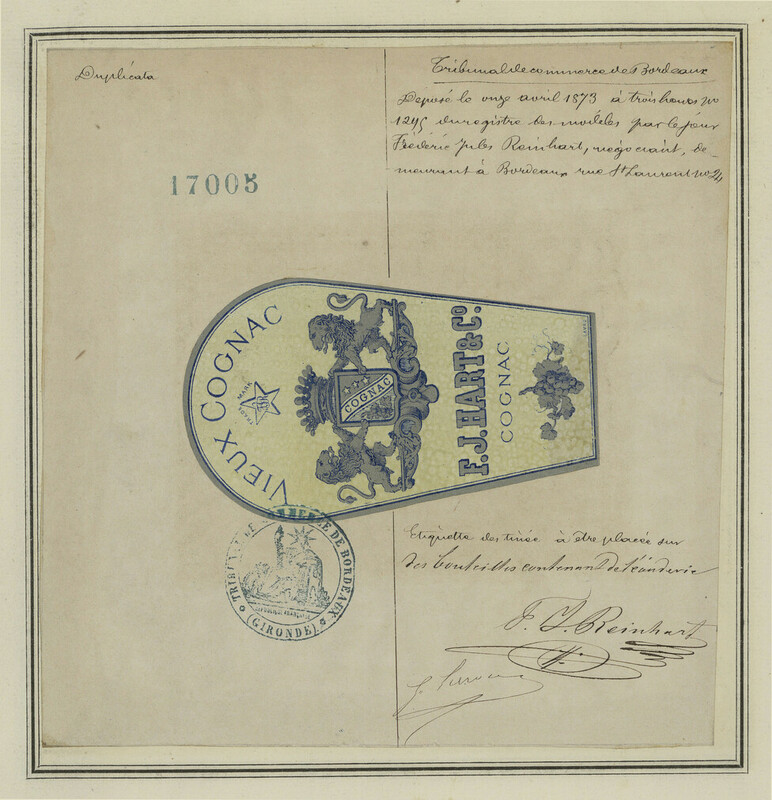 Duplicata
17005
Tribunal de commerce de Bordeaux
Déposé le onze avril 1873 à trois heures no
1295 du registre des modèles par le sieur
Frédéric Jules Reinhart, négociant, de-
meurant à Bordeaux rue St Laurent no 24
VIEUX COGNAC
TRADE MARK
COGNAC
F. J. HART & Co.
COGNAC
TRIBUNAL DE COMMERCE DE BORDEAUX
RÉPUBLIQUE FRANÇAISE
(GIRONDE)
Etiquette destinée à être placée sur
des bouteilles contenant de l'eau de vie
F. J. Reinhart